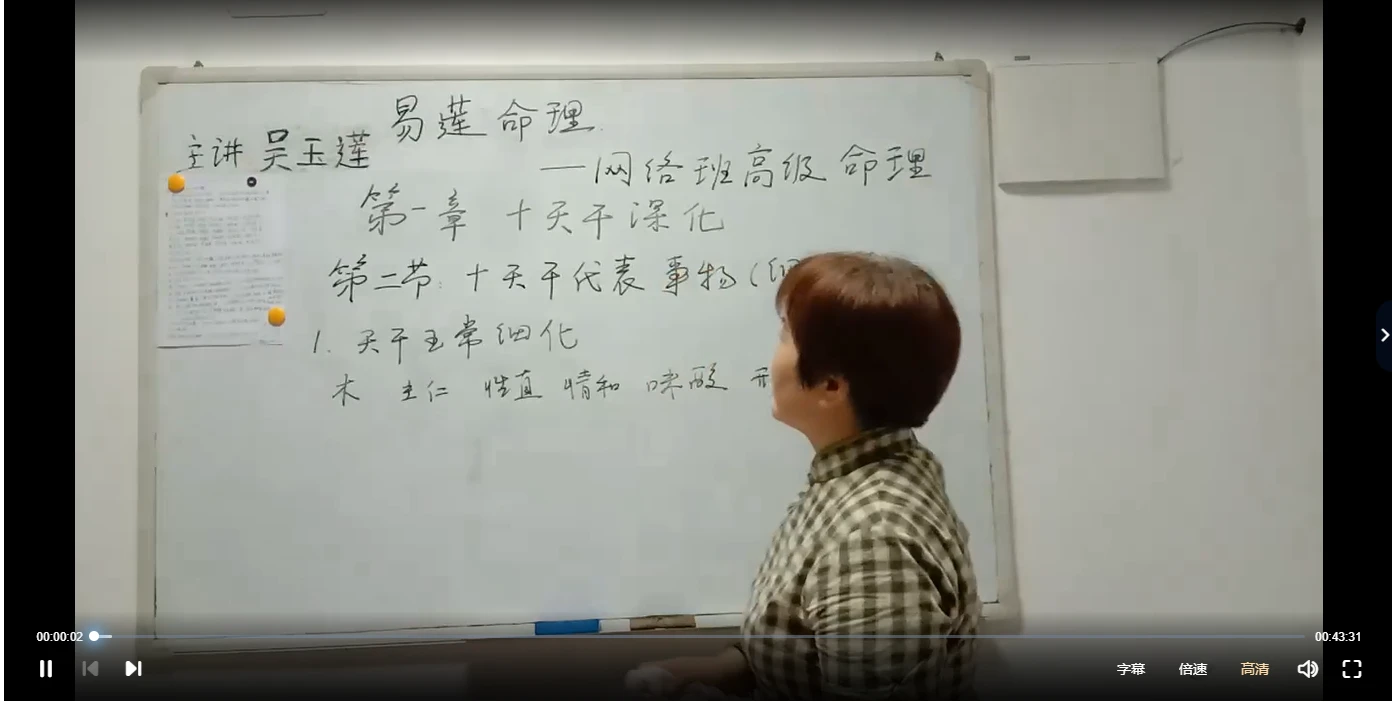 易莲命理
主讲 吴玉莲
—网络班高级命理
第一章 十天干深化
第二节: 十天干代表事物(
1. 天干正常细化
木 主仁 性直 情和 味酸 形
00:00:02
00:43:31
字幕 倍速 高清